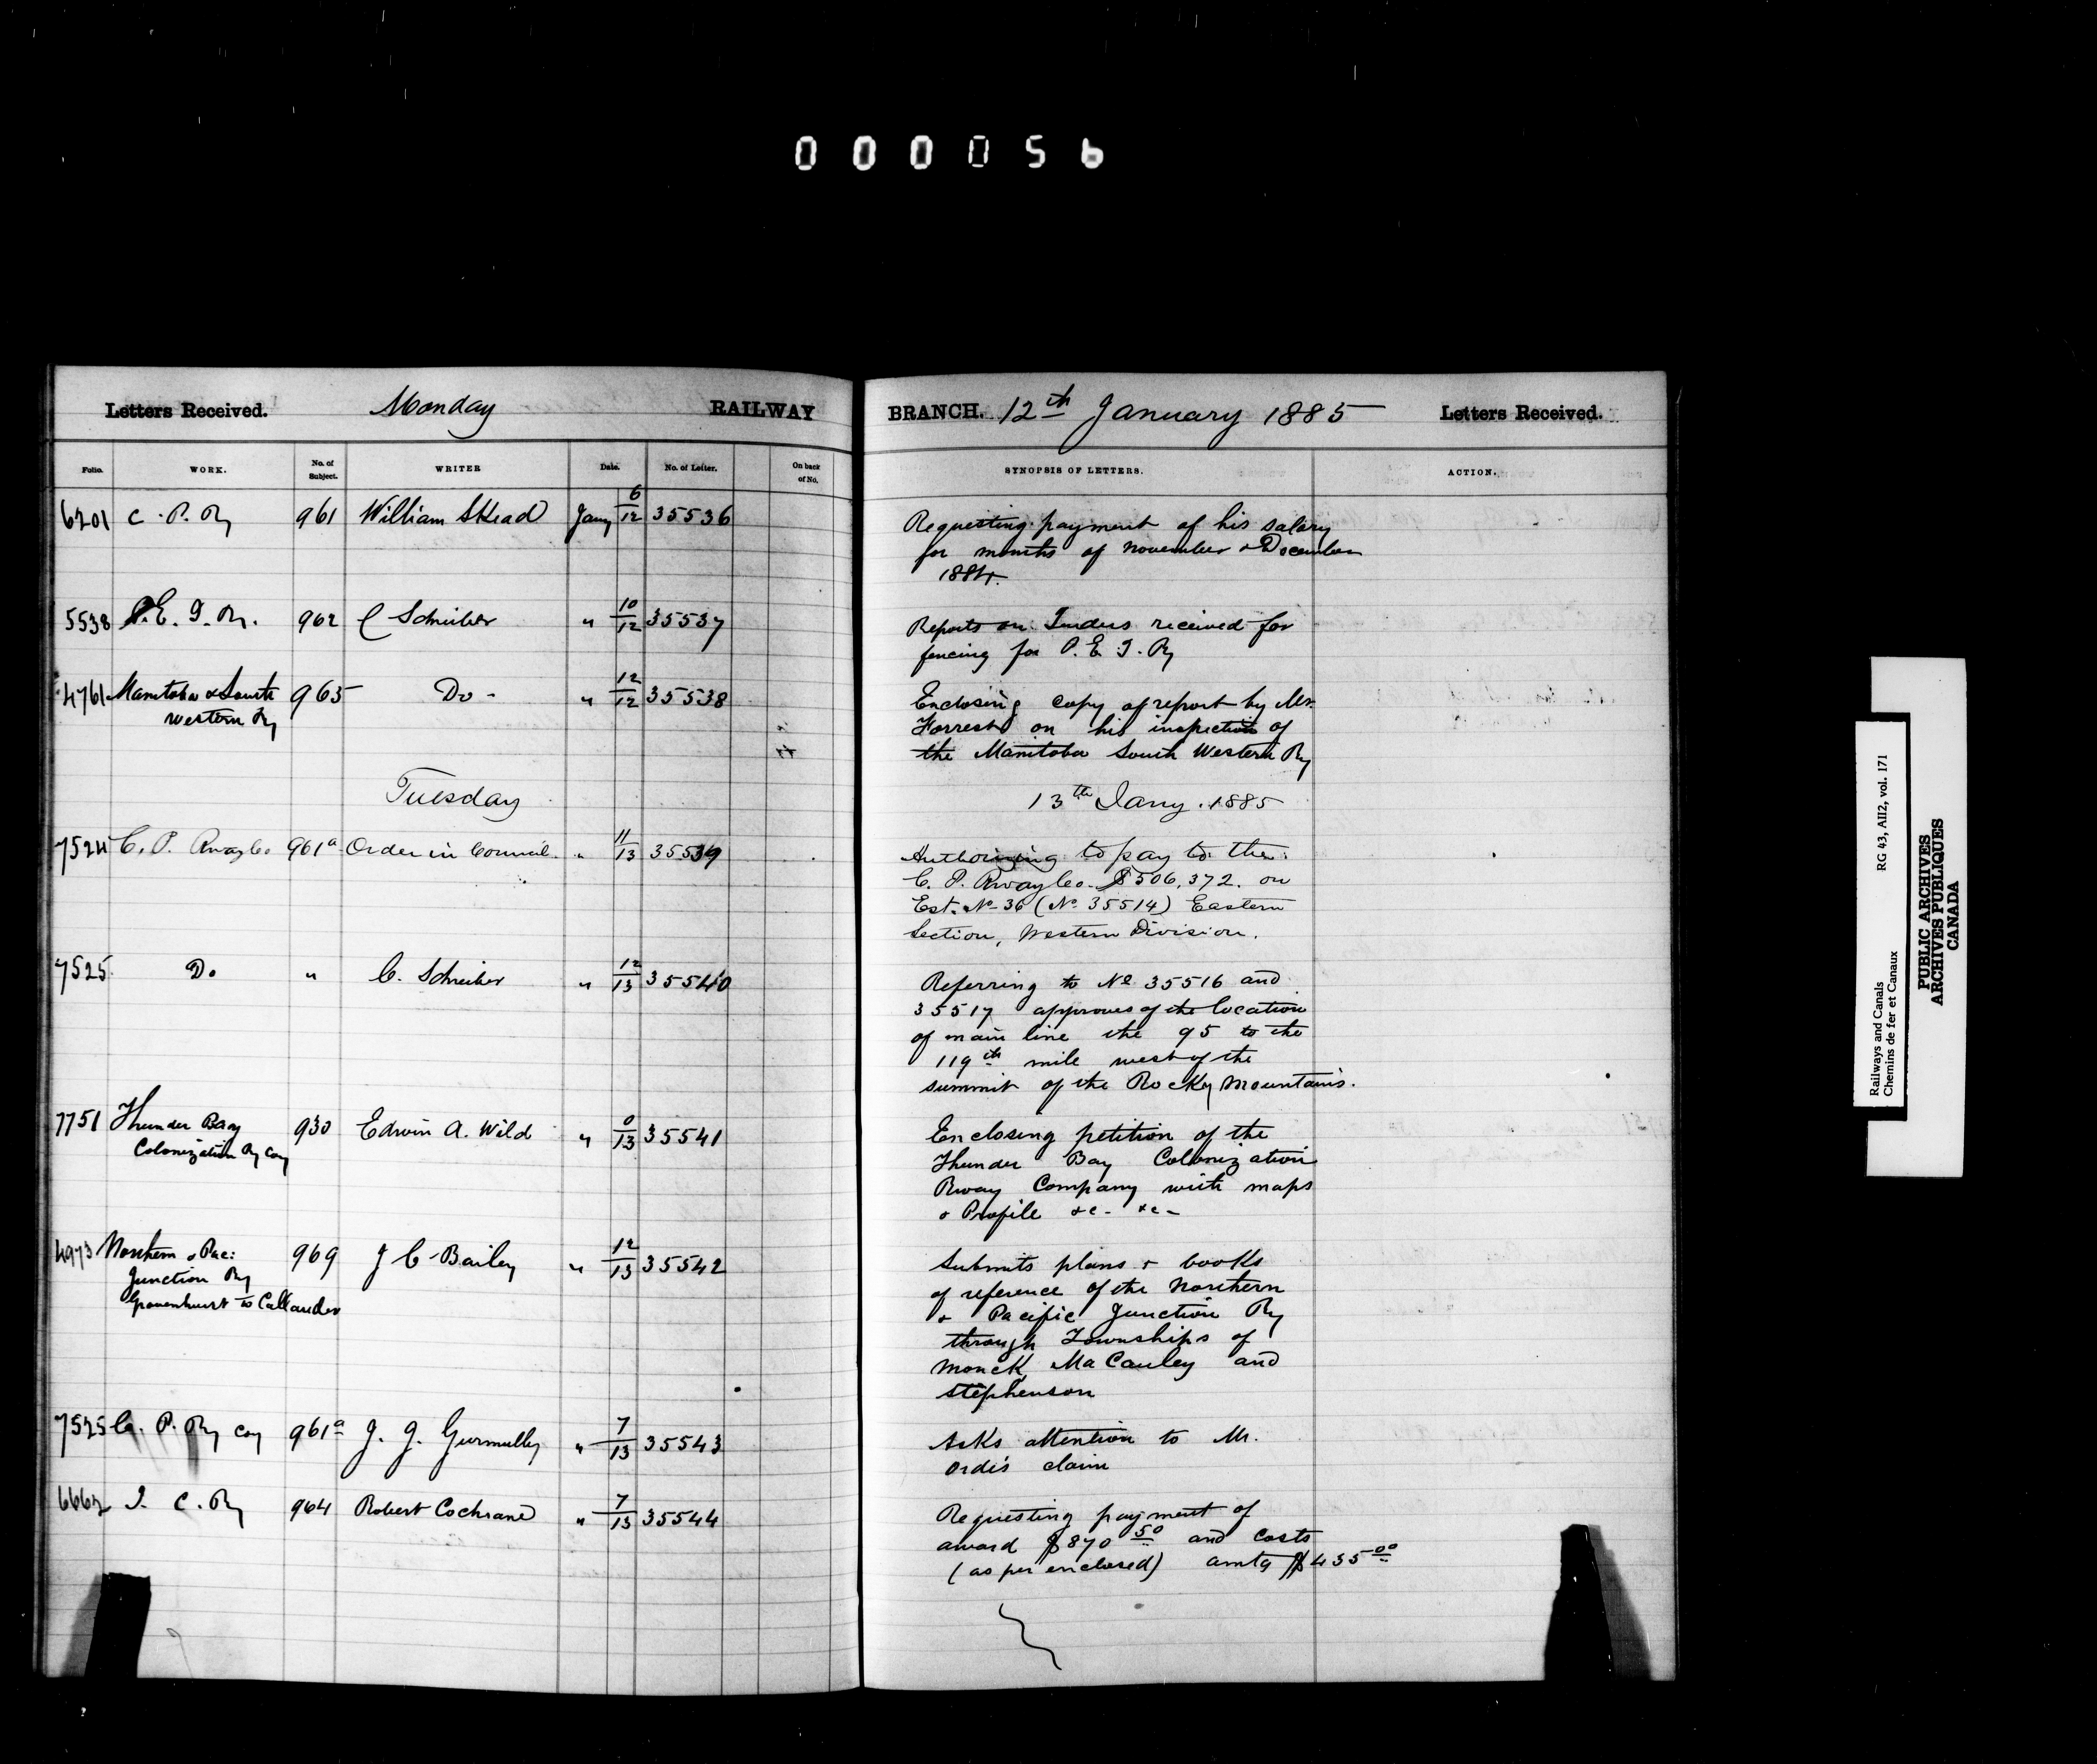 000056
Letters Received. Monday RAILWAY
Folio. WORK. No. of Subject. WRITER Date. No. of Letter. On back of No.
6201 C. P. Ry 961 William Skead Jany 6/12 35536
5538 P. E. I. Ry. 962 C Schreiber " 10/12 35537
4761 Manitoba & South 965 Do - " 12/12 35538
Western Ry
Tuesday
7524 C. P. Rway Co 961a Order in Council. " 11/13 35539
7525 Do " C. Schreiber " 12/13 35540
7751 Thunder Bay 930 Edwin A. Wild " 0/13 35541
Colonization Ry Coy
4973 Northern & Pac: 969 J C Bailey " 12/13 35542
Junction Ry
Gravenhurst to Callander
7525 C. P. Ry Coy 961a J. J. " 7/13 35543
6662 I. C. Ry 964 Robert Cochrane " 7/13 35544
BRANCH. 12th January 1885 Letters Received.
SYNOPSIS OF LETTERS. ACTION.
Requesting payment of his salary
for months of November & December
1884.
Reports on Tenders received for
fencing for P. E. I. Ry
Enclosing copy of report by Mr.
Forrest on his inspection of
the Manitoba South Western Ry
13th Jany. 1885
Authorizing to pay to the
C. P. Rway Co. $506,372. on
Est. No 36 (No 35514) Eastern
Section, Western Division.
Referring to No 35516 and
35517 approves of the location
of main line the 95 to the
119th mile west of the
summit of the Rocky Mountains.
Enclosing petition of the
Thunder Bay Colonization
Rway Company with maps
& Profile &c - &c -
Submits plans & books
of reference of the Northern
& Pacific Junction Ry
through Townships of
Monck MaCauley and
Stephenson
Asks attention to Mr.
Ordes claim
Requesting payment of
award $870 50 and costs
(as per enclosed) amtg $435 00
Railways and Canals RG 43, AII2, vol. 171
Chemins de fer et Canaux
PUBLIC ARCHIVES
ARCHIVES PUBLIQUES
CANADA